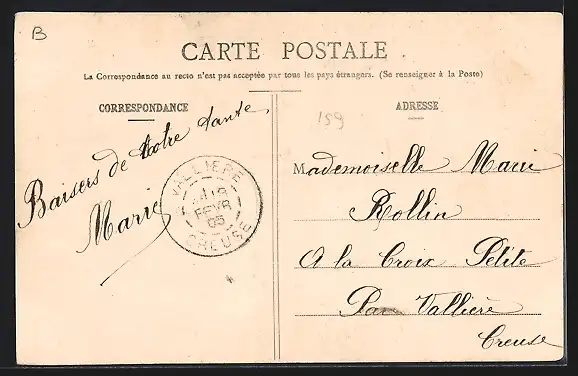 B
CARTE POSTALE
La Correspondance au recto n'est pas acceptée par tous les pays étrangers. (Se renseigner à la Poste)
CORRESPONDANCE
Baisers de votre tante
Marie
VALLIERE
FEVR
05
CREUSE
ADRESSE
159
Mademoiselle Marie
Rollin
A la Croix Petite
Par Vallière
Creuse